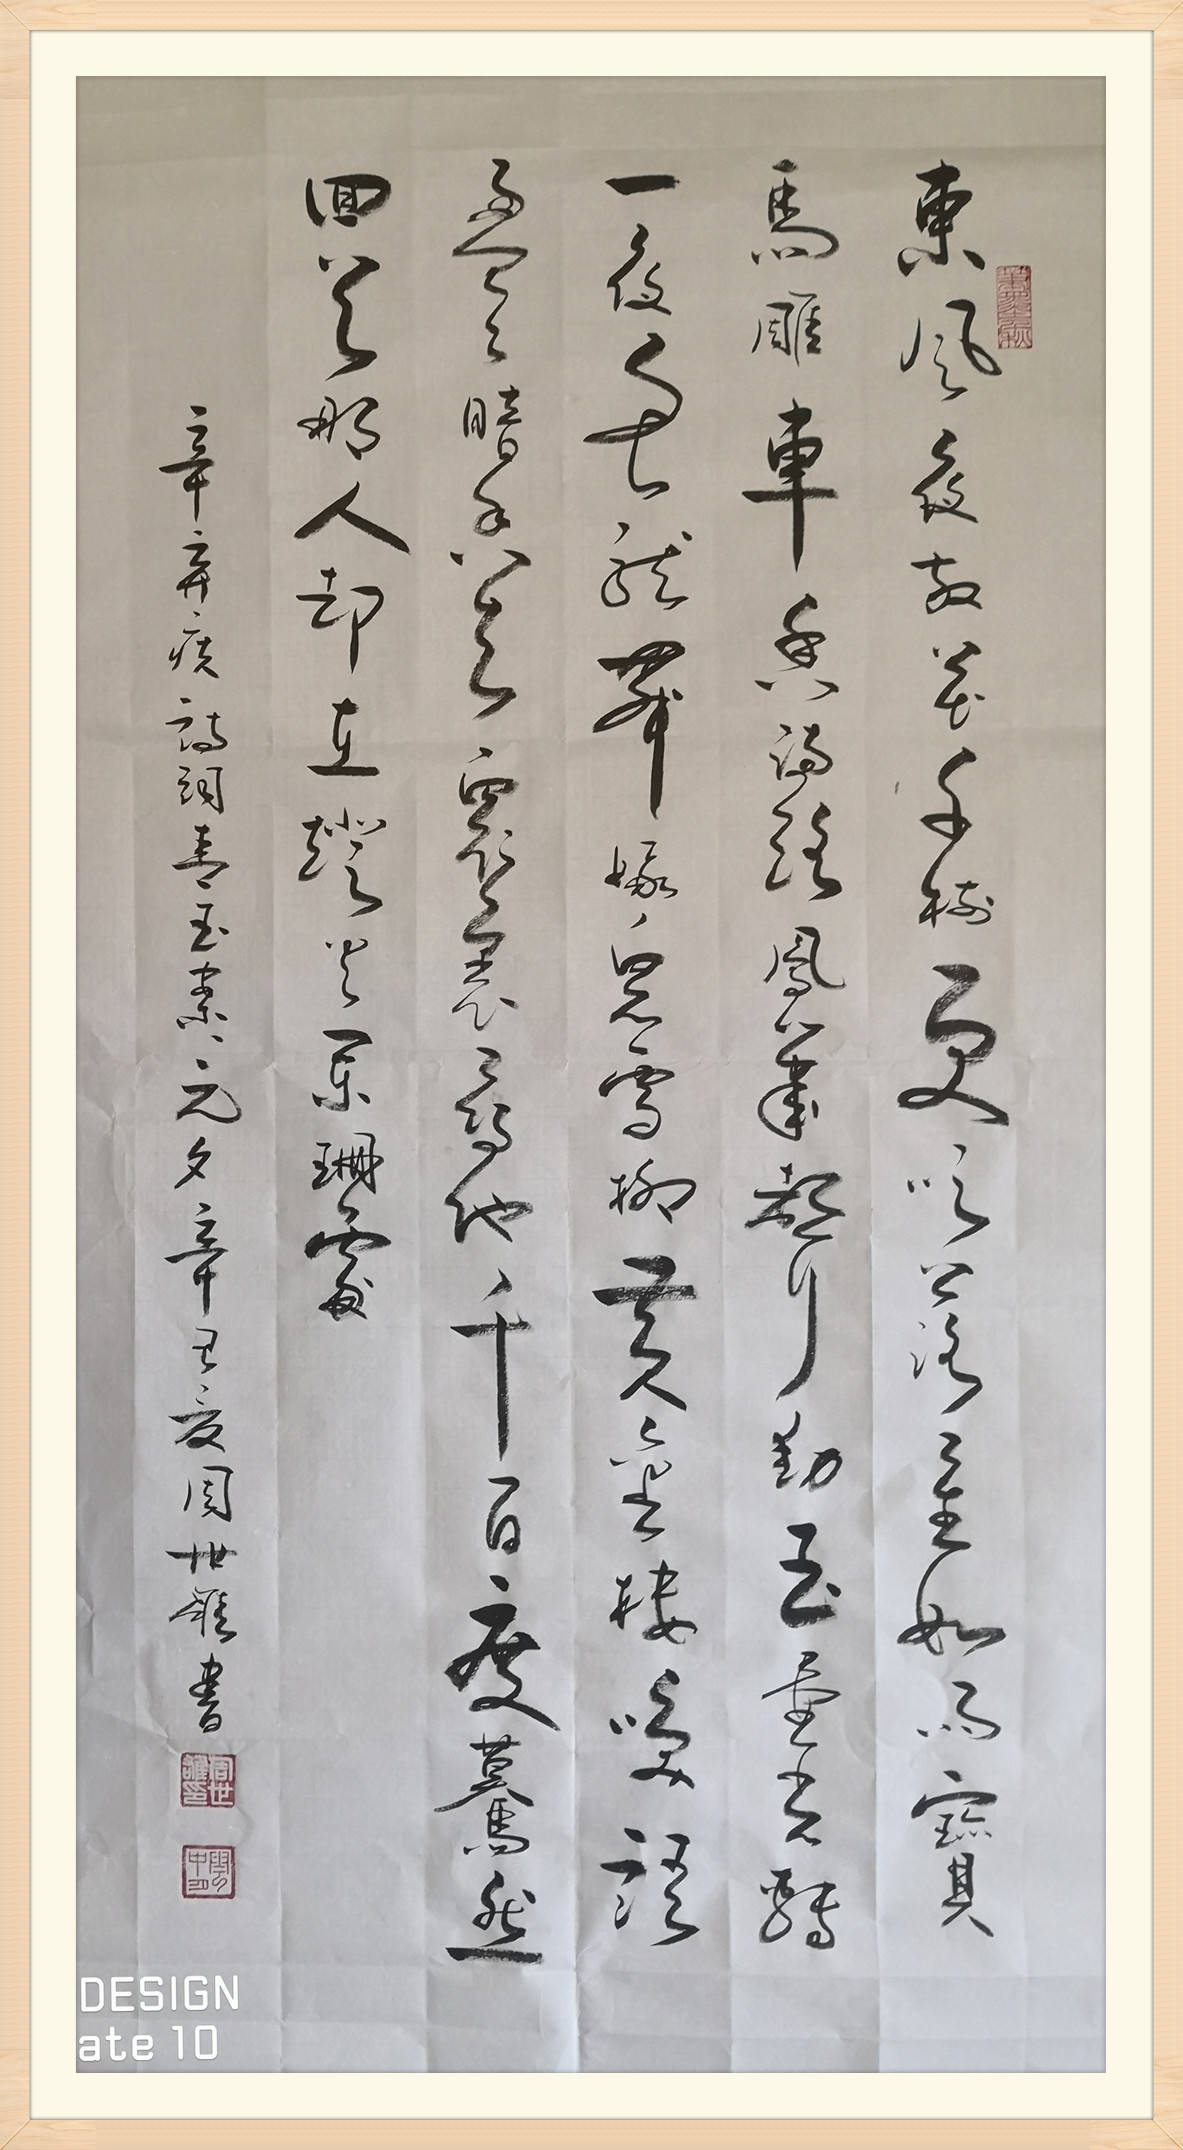 東風夜放花千樹更吹落星如雨寶
馬雕車香滿路鳳簫聲動玉壺光轉
一夜魚龍舞娥兒雪柳黄金縷咲語
盈盈暗香去衆裏尋他千百度驀然
回首那人却在燈火闌珊處
辛弃疾詩詞青玉案元夕辛丑夏周世雄書
周世雄印
DESIGN
ate 10